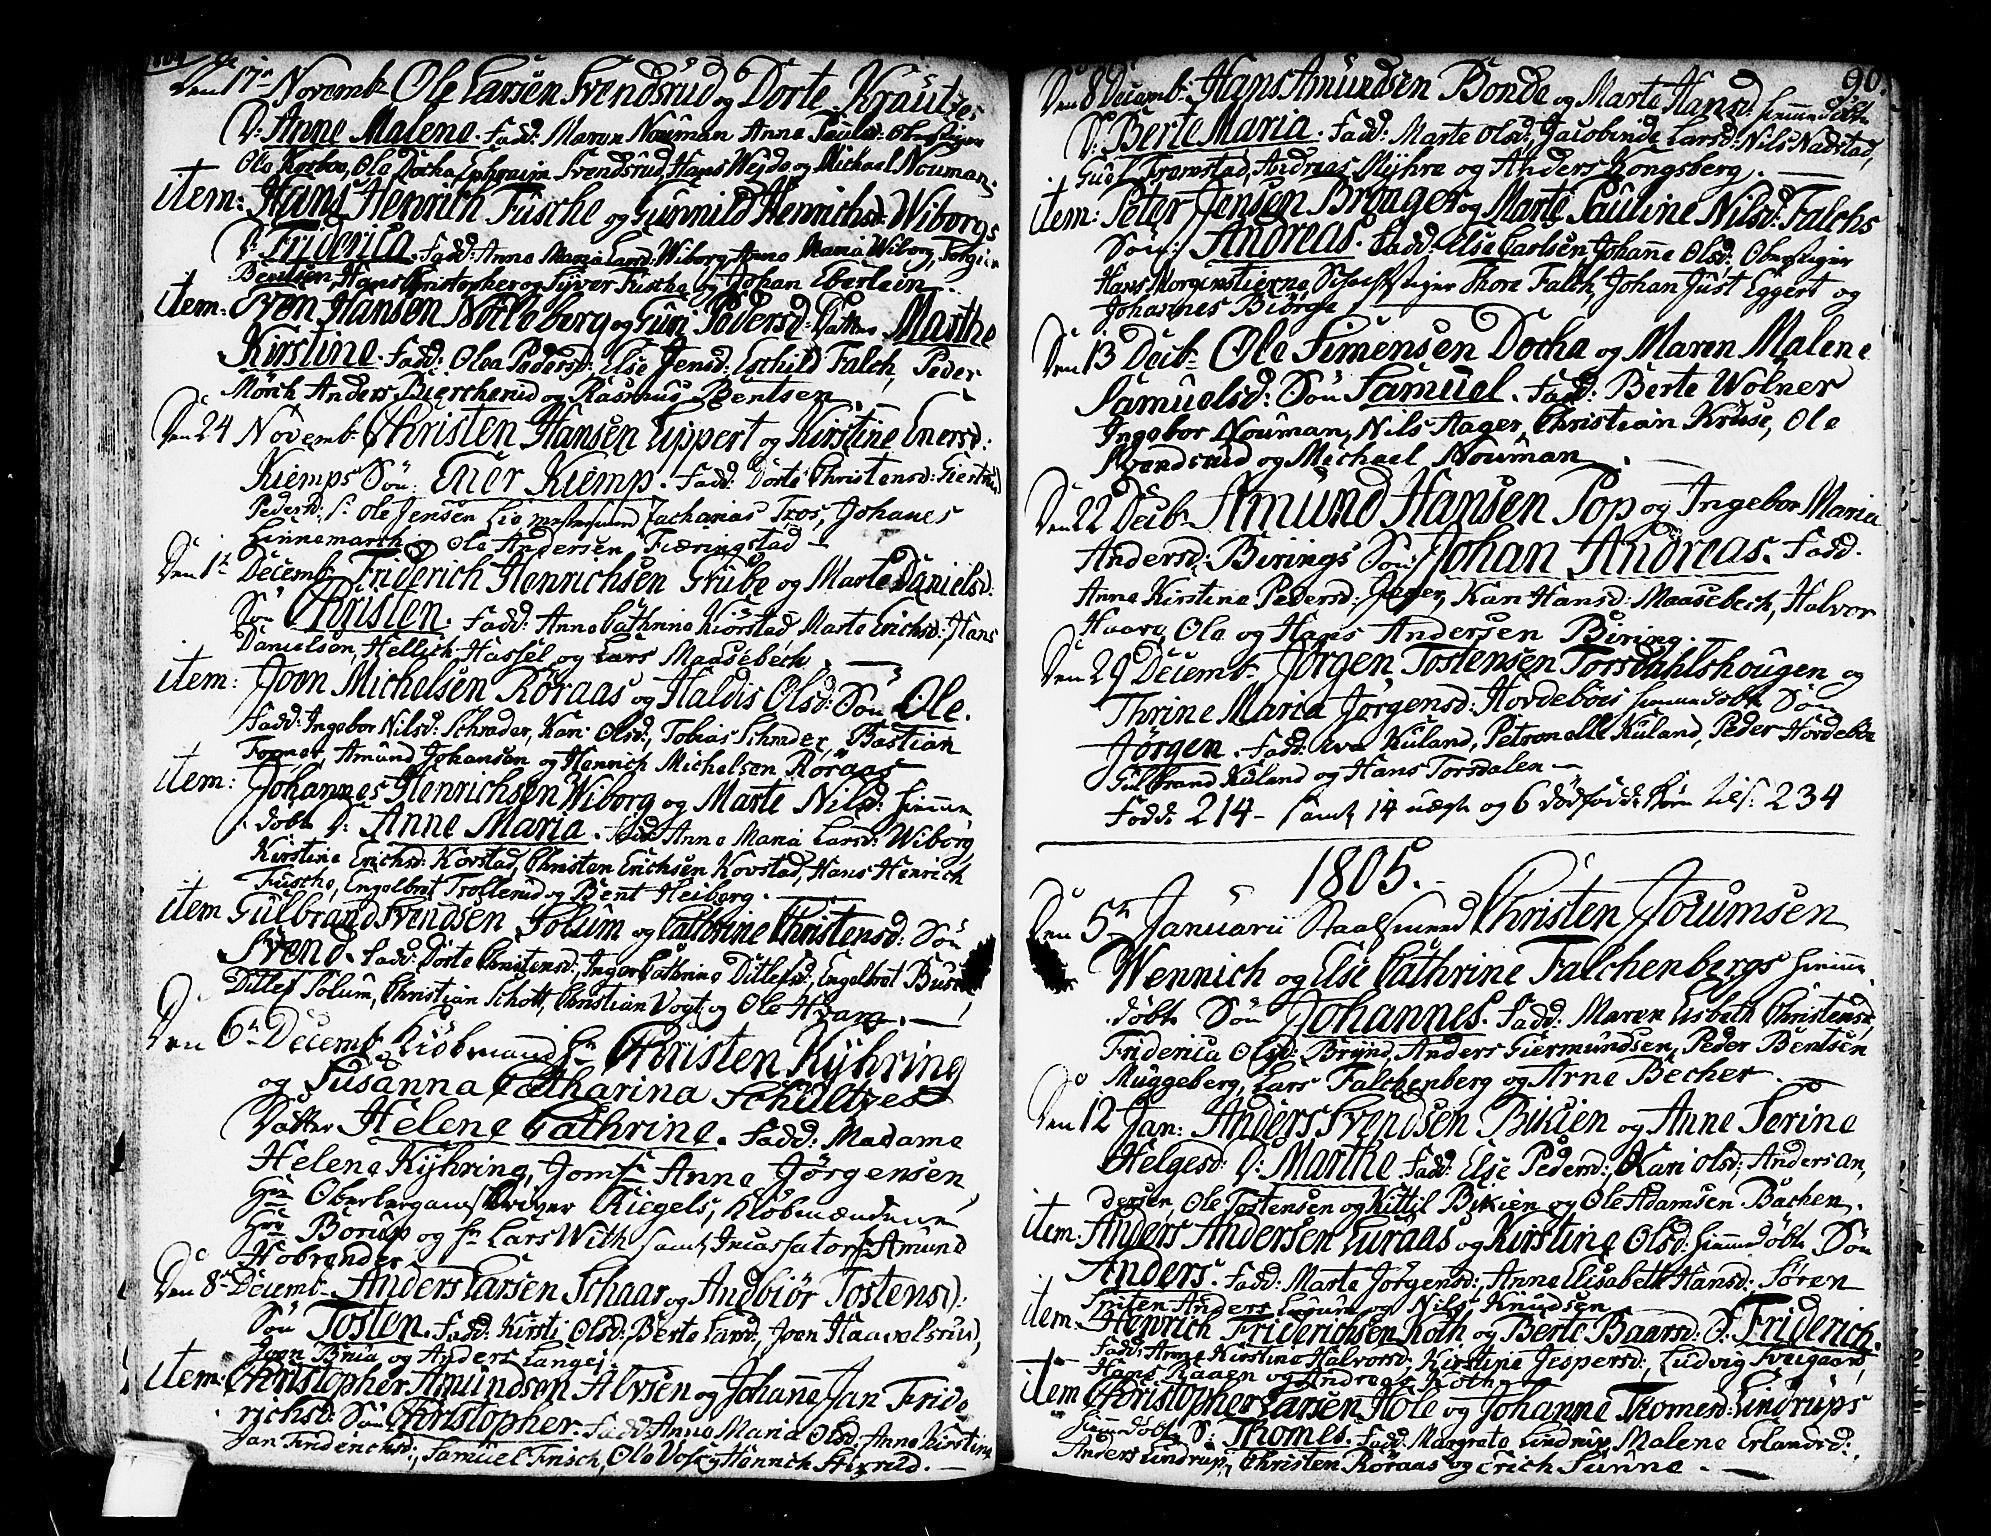 1804
Den 17n Novemb: Ole Larsen Svendsrud og Dorte Krautzes
D: Anne Malene. Fadd: Maren Nouman Anne Paulsd: Oberstiger
Ole Docka, Ephraim Svendsrud, Hans Weyde og Michael Nouman
item: Hans Henrich Fusche og Gunnild Henrichsd: Wiborgs
D: Friderica. Fadd: Anne Maria Larsd: Wiborg, Anne Maria Wiborg, Torgier
Bentsen, Hans Christopher og Syver Fusche og Johan Eberlein.
item: Even Hansen Nørleberg og Guri Pedersd: Datter Marthe
Kirstine. Fadd: Olea Pedersd: Else Jensd: Eschild Falch, Peder
Mörch Anders Bierchenid og Rasmus Bentsen.
Den 24 Novemb: Christen Hansen Lippert og Kirstine Enersd:
Kiemps Søn: Ener Kiemp. Fadd: Dorte Christensd: Giertrud
Pedersd: Sr Ole Jensen Lie, Zacharias Tros, Johanes
Linnemarch og Ole Andersen Fiæringstad
Den 1te Decemb: Friderich Henrichsen Grube og Marte Danielsd:
Søn Christen. Fadd: Anne Cathrine Kiörstad Marte Erichsd: Hans
Danielsen, Hellich Hassel og Lars Maasebech
item: Joen Michelsen Röraas og Haldis Olsd: Søn Ole.
Fadd: Ingebor Nilsd: Schrader, Kari Olsd:, Tobias Schrader, Bastian
Fogner, Amund Johansen og Henrich Michelsen Röraas
item: Johannes Henrichsen Wiborg og Marte Nilsd: hiemme
döbt D: Anne Maria. Fadd: Anne Maria Larsd: Wiborg,
Kirstine Erichsd: Kovstad, Christen Erichsen Kovstad, Hans Henrich
Fusche, Engelbret Trollerud og Bent Heiberg.
item Gulbrand Svendsen Solum og Cathrine Christensd: Søn
Svend. Fadd: Dorte Christensd:, Inger Cathrine Ditlefsd:, Engelbret
Ditlef Solum, Christian Schott, Christian Vogt og Ole Hvam.
Den 6te Decemb: Kiöbmand Hr Christen Kyhring
og Susanna Catharina Schultzes
Datter Helene Cathrine. Fadd: Madame
Helene Kyhring, Jomfr Anne Jörgensen,
Hr: Oberbergamtskriver Riegels, Kiöbmændene
Hrr Borup og Hr Lars With samt Incassator Amund
Hobrander
Den 8de Decemb. Anders Larsen Schaar og Andbiör Tostensd:
Søn Tosten. Fadd: Kirsti Olsd: Berte Larsd:, Joen Haavalsrud,
Joen Bria og Anders Lange.
item: Christopher Amundsen Alvsen og Johanne Jan Fride
richsd: Søn Christopher. Fadd: Anne Maria Olsd: Anne Kirstine
Jan Friderichsd:, Samuel Frisch, Ole Vos og Henrich
90.
Den 8 Decemb. Hans Amundsen Bonde og Marte Hansd: hiemmedöbte
D: Berte Maria. Fadd: Marte Olsd: Jacobinde Larsd: Nils Nadstad,
Gul: Tramstad, Andreas Myhre og Anders Kongsberg.
item: Peter Jensen Braager og Marte Pauline Nilsd: Falchs
Søn: Andreas. Fadd: Else Carlsen, Johanne Olsd: Oberstiger
Hans Morgenstierne, Schachtstiger Thore Falch, Johan Just Eggert og
Johannes Biörge
Den 13 Decb. Ole Simensen Docka og Maren Malene
Samuelsd: Søn Samuel. Fadd: Berte Wolner
Ingebor Nouman, Nils Aager, Christian Kruse, Ole
Svendsrud og Michael Nouman.
Den 22 Decb. Amund Hansen Pop og Ingebor Maria
Andersd: Birings Søn: Johan Andreas. Fadd.
Anne Kirstine Pedersd: Jeger, Kari Hansd: Maasebech, Halvor
Haare, Ole og Hans Andersen Biring.
Den 29 Decemb. Jörgen Tostensen Torsdahlshougen og
Thrine Maria Jörgensd: Hordebös hiemmedöbte Søn
Jörgen. Fadd: Eva Kuland, Petronelle Kuland, Peder Hordebö
Gulbrand Kuland og Hans Torsdalen
Födde 214 – samt 14 uægte og 6 dödfödde Börn tils: 234
1805.
Den 5te Januarii Staalsmed Christen Jorumsen
Wennich og Else Cathrine Falchenbergs hiemme
döbte Søn Johannes. Fadd: Maren Lisbeth Christensd:
Friderica Olsd: Brynd, Anders Giermundsen, Peder Bentsen
Muggeberg, Lars Falchenberg og Arne Becher.
Den 12 Jan: Anders Svendsen Bikien og Anne Serine
Helgesd: D: Marthe Fadd: Else Pedersd:, Kari Olsd:, Anders An,
dersen, Ole Tostensen og Kittil Bikien og Ole Adamsen Bachen.
item Anders Andersen Luraas og Kirstine Olsd: hiemmedöbte Søn
Anders. Fadd: Marte Jörgensd: Anne Elisabeth Hansd: Sören
Anders Lurum og Nils Knudsen
item: Henrich Friderichsen Koth og Berte Baarsd: S: Friderich.
Fadd: Anne Kirstine Halvorsd: Kirstine Jespersd:, Ludvig Sveigaard,
Hans Raaen og Andreas Koth
item Christopher Larsen Hole og Johanne Thomesd: Lindrups
hiemdöbte S: Thomes. Fadd: Margrete Lindrup, Malene Erlandsd:
Anders Lindrup, Christen Röraas og Erich Sunne.